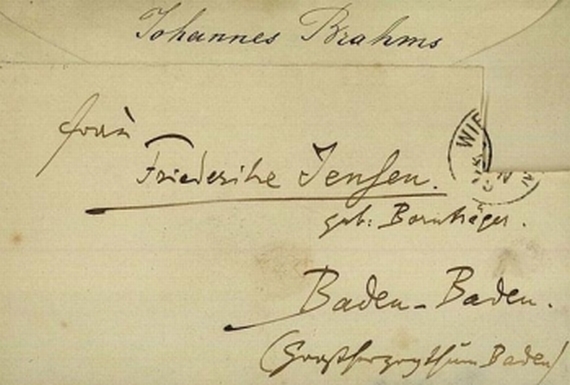 Johannes Brahms
Frau
Friederike Jensen.
geb: Bornträger.
WIE
Baden-Baden.
(Großherzogthum Baden)